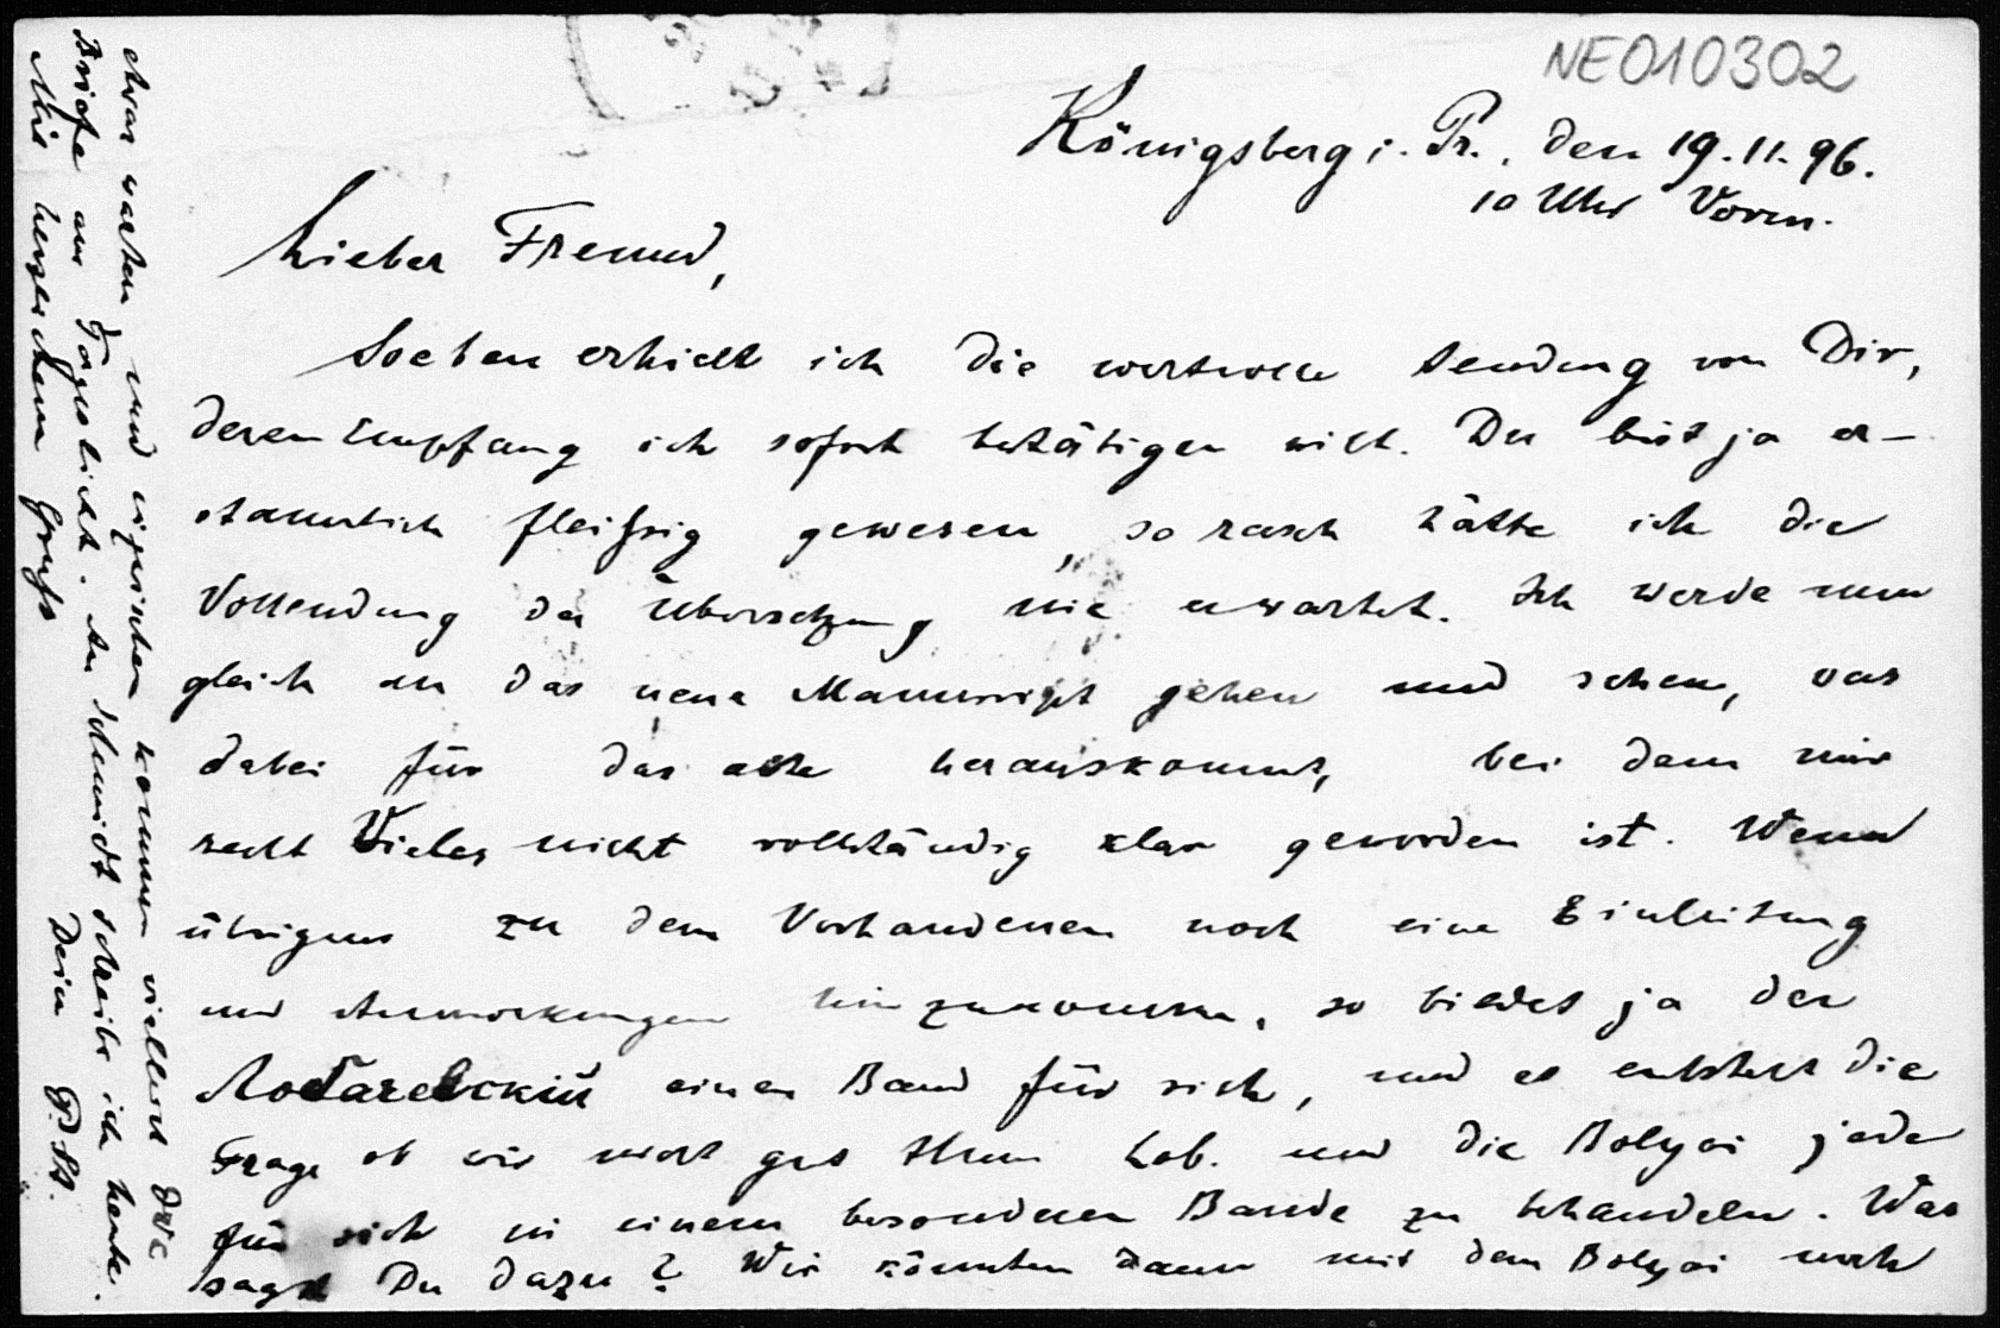 NE010302
Königsberg i. Pr., den 19.11.96.
10 Uhr Vorm.
Lieber Freund,
Soeben erhielt ich die wertvolle Sendung von Dir,
deren Empfang ich sofort bestätigen will. Du bist ja er-
staunlich fleißig gewesen, so rasch hätte ich die
Vollendung der Übersetzung nie erwartet. Ich werde nun
gleich an das neue Manuscript gehen und sehen, was
dabei für das alte herauskommt, bei dem mir
recht Vieles nicht vollständig klar geworden ist. Wenn
übrigens zu dem Vorhandenen noch eine Einleitung
und Anmerkungen hinzukommen, so bildet ja der
Лобачевскій einen Band für sich, und es entsteht die
Frage ob wir nicht gut thun Lob. und die Bolyai jeder
für sich in einem besonderen Bande zu behandeln. Was
sagst Du dazu? Wir könnten dann mit dem Bolyai noch
etwas warten und inzwischen kommen vielleicht die
Briefe ans Tageslicht. An Schmidt schreibe ich heute.
Mit herzlichem Gruß Dein P. St.